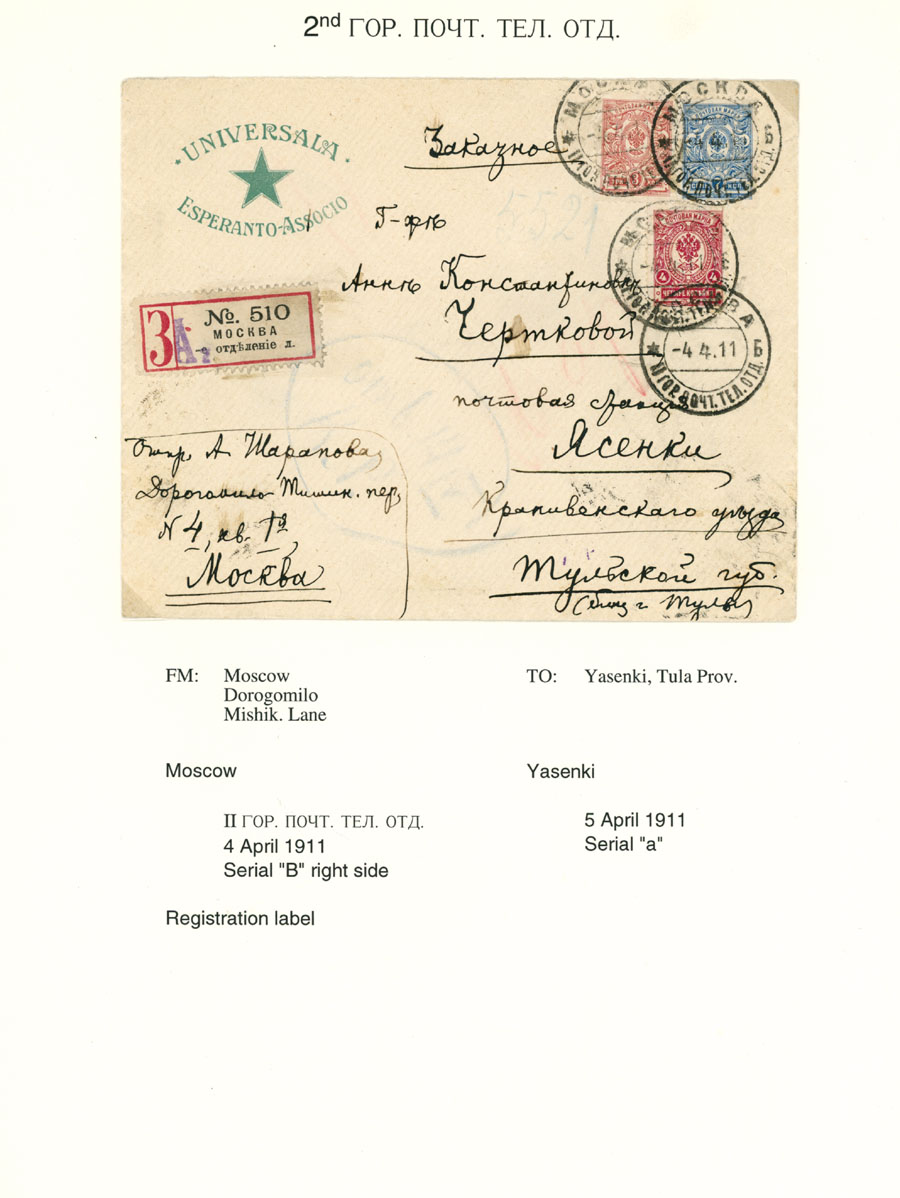 2nd ГОР. ПОЧТ. ТЕЛ. ОТД.
UNIVERSALA
ESPERANTO-ASSOCIO
Заказное
Г-жѣ
Аннѣ Константиновнѣ
Чертковой
почтовая станція
Ясенки
Крапивенскаго уѣзда
Тульской губ.
(близ г. Тулы)
З
№. 510
МОСКВА
отдѣленіе л.
Отпр. А. Шарапова,
Дорогомило Тишин. пер.
N 4, кв. 12,
Москва
МОСКВА Б
МОСКВА
МОСКВА
-4 4.11 Б
II ГОР. ПОЧТ. ТЕЛ. ОТД.
ПОЧТОВАЯ МАРКА
4 4
ЧЕТЫРЕ КОП
FM: Moscow
Dorogomilo
Mishik. Lane
TO: Yasenki, Tula Prov.
Moscow
Yasenki
II ГОР. ПОЧТ. ТЕЛ. ОТД.
4 April 1911
Serial "B" right side
5 April 1911
Serial "a"
Registration label